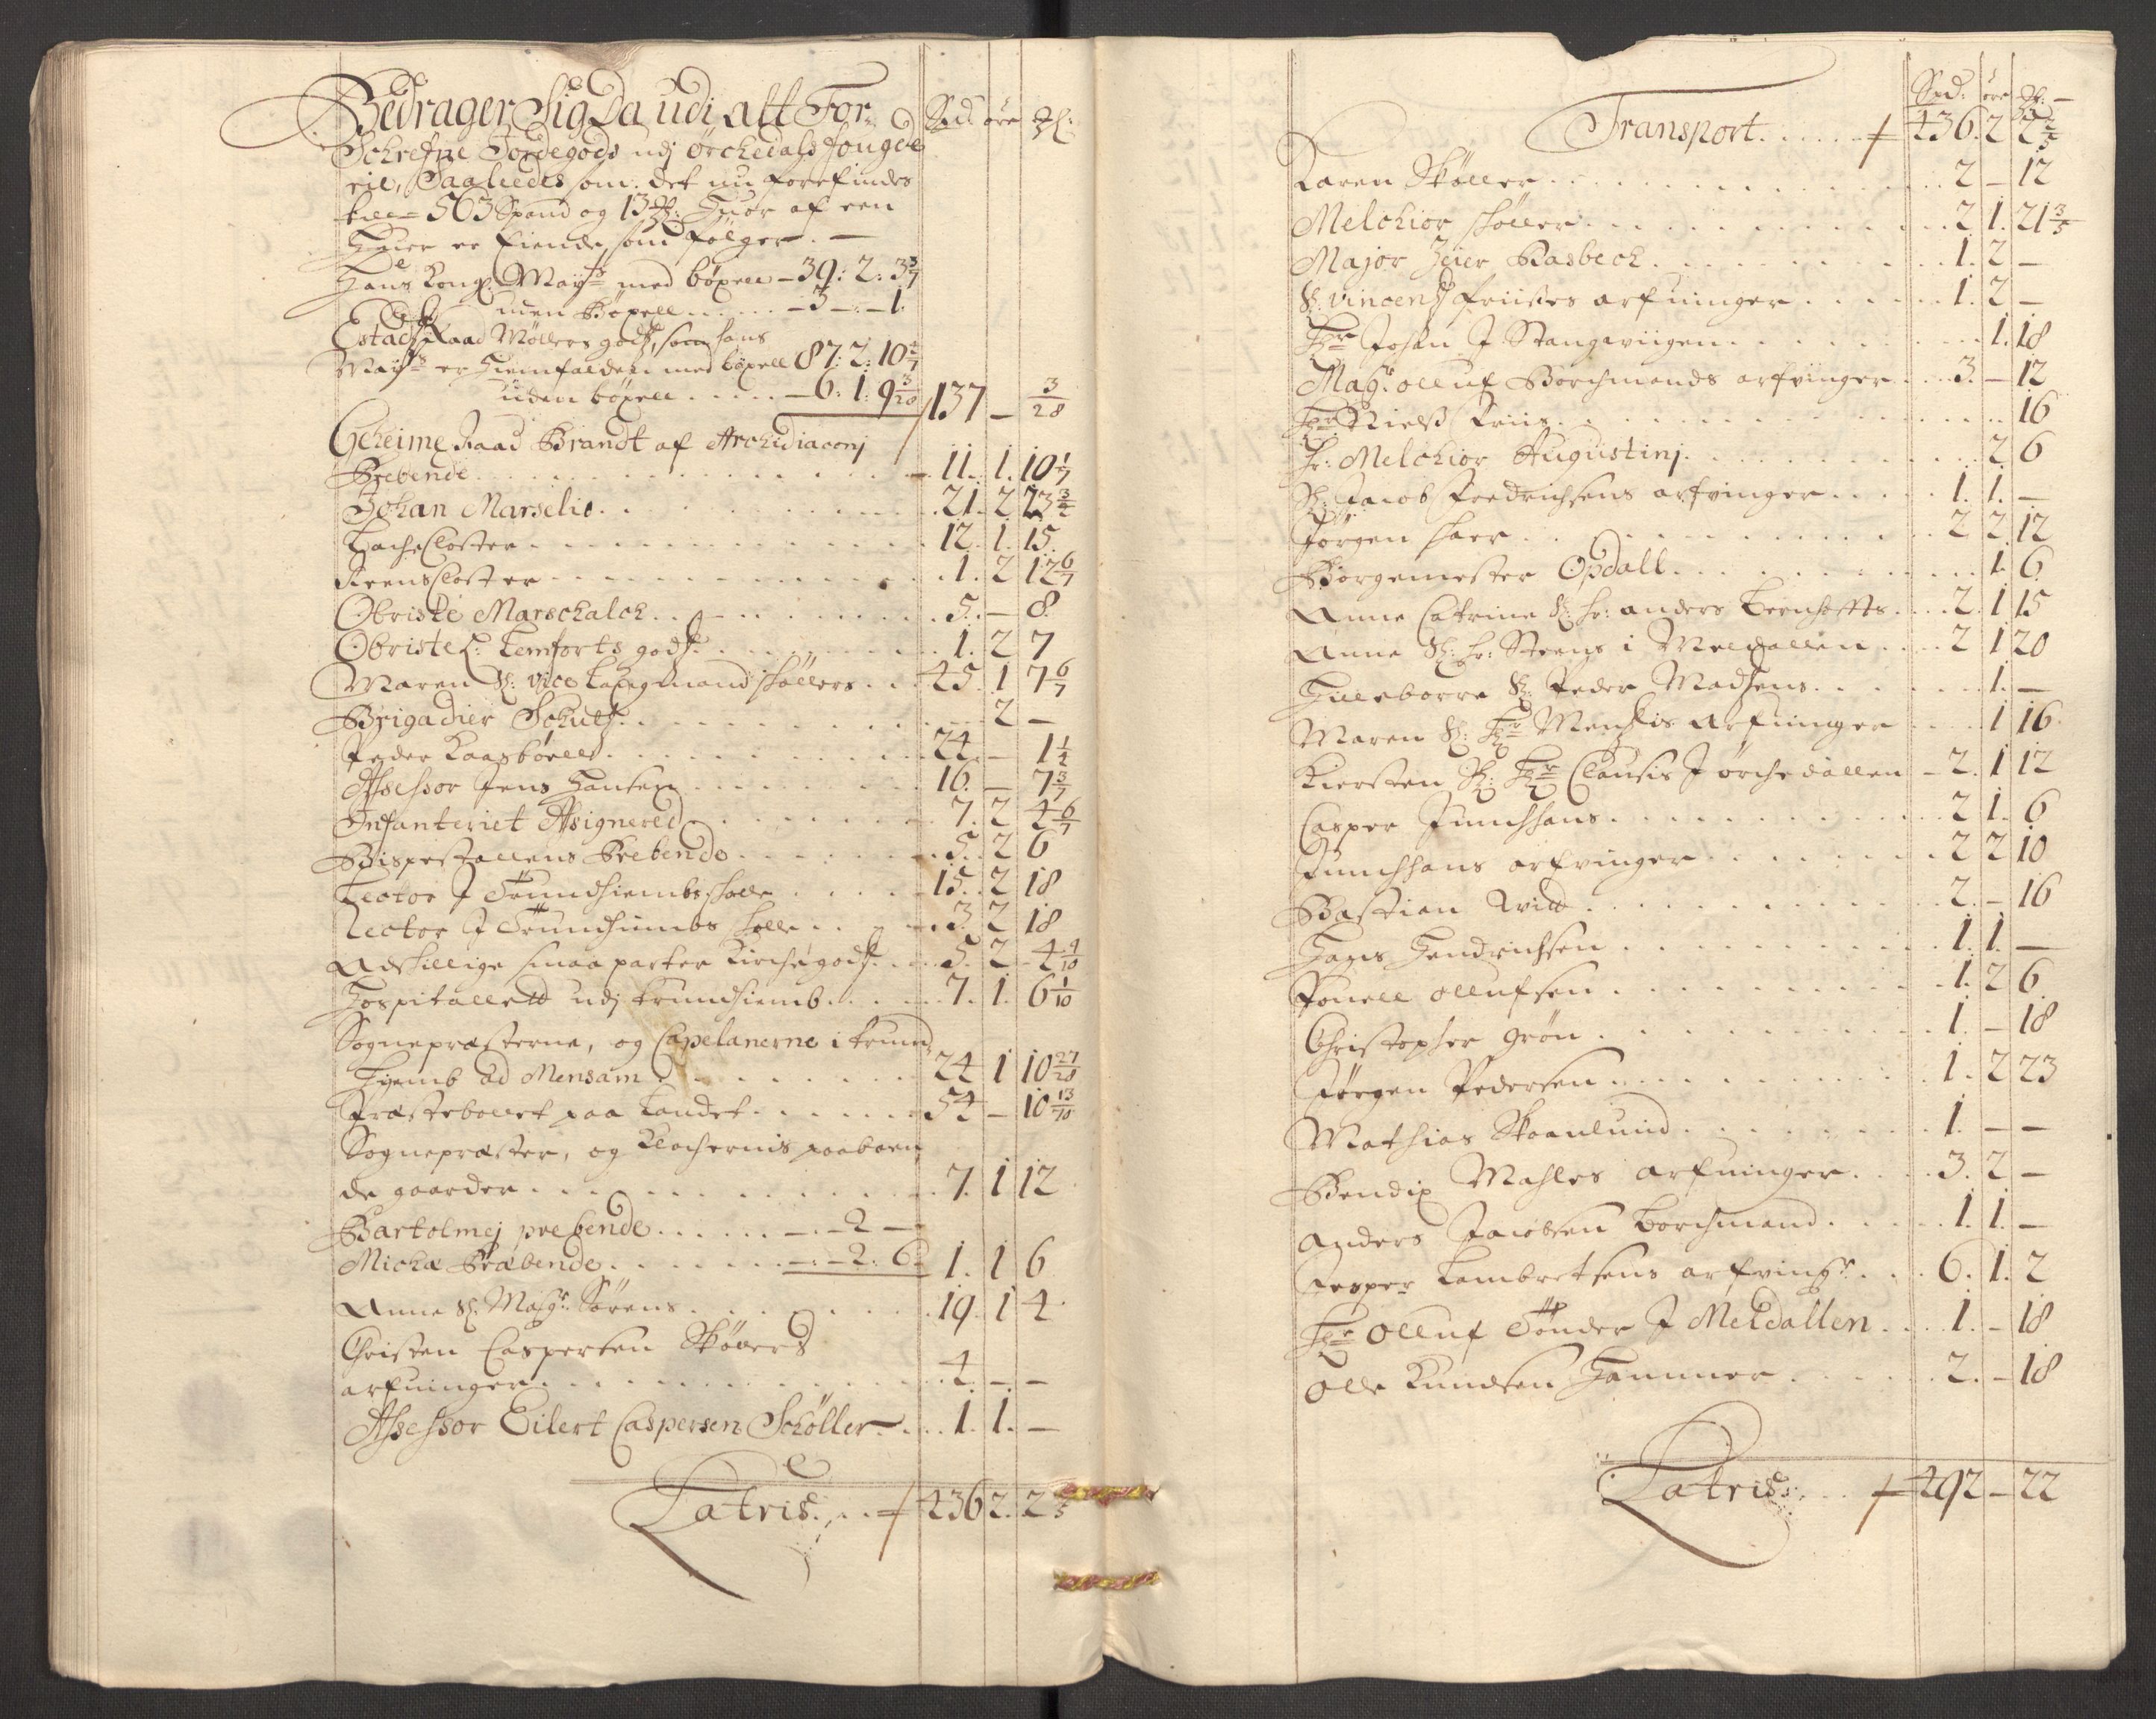 Bedrager Sig Da udi alt For: Spd: öre ₰:
Schrefne Jordegods udj Örchedals fougde
rie, Saaledes som det nu forefindes
till 503 Spand og 13 ₰: Huor af een
Huer er Eiende som følger. —
Hans Kongl: Mayts med böxell – 39: 2: 3 3/7
uden Böxell ..... – 3 – : – 1.
Estads Raad Møllers gods, som hans
Mayts er Hiemfalden med böxell 87: 2: 10 4/7
uden böxell ..... – 6: 1: 9 3/20 137 – 3/28
Geheime Raad Brandt af Archidiaconj
Prebende ..... 11. 1. 10 1/7
Johan Marselio ..... 21. 2 23 3/4
Bache Closter ..... 12. 1. 15.
Reens Closter ..... 1. 2 12 6/7
Obriste Marschalch ..... 5. – 8.
Obristel: Lemforts gods ..... 1. 2 7
Maren Sl: Vice Laugmand Schøllers ... 45. 1 7 6/7
Brigadier Schults ..... 2 –
Peder Kaasbøell ..... 24. – 1 1/4
Assessor Jens Hansen ..... 16. – 7 3/7
Infanteriet Assignered ..... 7. 2 4 6/7
Bispestallens Prebende ..... 5. 2 6
Rector J Trundhiembs scholle ..... 15. 2 18
Lector J Trundhiembs scholle ..... 3. 2 18
Adskillige smaa parter Kirchegods ... 5. 2 – 4 9/10
Hospitallett udj Trundhiemb ..... 7. 1. 6 1/10
Sognepræsterne, og Capelanerne i Trund
Hjemb ad Mensam ..... 24 1 10 27/28
Præstebollet paa Landet ..... 54 – 10 13/70
Sognepræster, og Klochernis paaboen
de gaarder ..... 7. 1 12
Bartolmej prebende ..... – 2 –
Micha Præbende ..... – : – 2: 6: 1. 1 6
Anna Sl. Magr: Sørens ..... 19. 1 4.
Christen Caspersen Skøllers
arfuinger ..... 4. – –
Assessor Eilert Caspersen Schøller ... 1. 1. –
Latris ... 436 2. 2 2/5
Spd: öre ₰: –
Transport ..... 436. 2 2 2/5
Karen Skøller ..... 2 – 12
Melchior skøller ..... 2 1. 21 3/5
Major Heier Basbech ..... 1. 2 –
Sl: Vincens Friises arfuinger ..... 1. 2 –
Hr Johan J Stangviigen ..... 1. 18
Magr: Olluf Borchmands arfvinger ... 3. – 12
Hr Nielss Friis ..... 16
hr: Melchior Augustinj ..... 2 6
Sl: Jacob Fredrichsens arfvinger ..... 1. 1. –
Jörgen haer ..... 2 2. 12
Borgemester Opdall ..... 1 6
Anne Catrine Sl: hr: anders Bernhofts ... 2. 1 15
Anne Sl: hr: Steens i Meldallen ... 2 1 20
Hilleborre Sl: Peder Madsens ..... 1. –
Maren Sl: Hr Menches Arfuinger ... 1 16.
Kiersten Sl: Hr Clausis J örchedallen – 2. 1 12
Casper Junchhans ..... 2 1. 6
Junchhans arfvinger ..... 2 2 10
Bastian Witt ..... 2. – 16
Hans Hendrichsen ..... 1. 1. –
Pouell ollufsen ..... 1. 2 6
Christopher grön ..... 1. – 18
Jörgen Pedersen ..... 1. 2 23
Mathias Skaanlund ..... 1. – –
Bendix Mahles arfuinger ..... 3. 2 –
Anders Jacobsen Borchmand ..... 1. 1. –
Jesper Lambretsens arfvingr ... 6. 1. 2
Hr Olluf Tönder J Meldallen ... 1. – 18
Olle Kundsen Hammer ..... 2. – 18
Latris ... 492 – 22